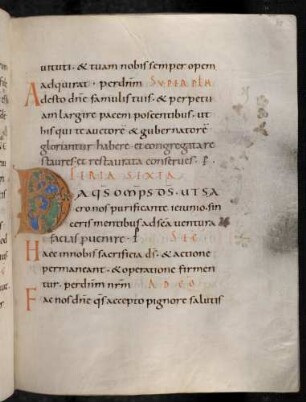 uirtuti · & tuam nobis semper opem
adquirat · perdnm SUPER PLM
Adesto dne famulis tuis · & perpetu
am largire pacem poscentibus · ut
his qui te auctore & gubernatore
gloriantur habere et congregata re
staures et restaurata conserues · p
FERIA SEXTA
Da qs omps ds · ut sa
cro nos purificante ieiunio · sin
ceris mentibus ad sca uentura
facias puenire · p SEC
Haec in nobis sacrificia ds · & actione
permaneant · & operatione firmen
tur · perdnm nrm AD CO
Fac nos dne qs accepto pignore salutis